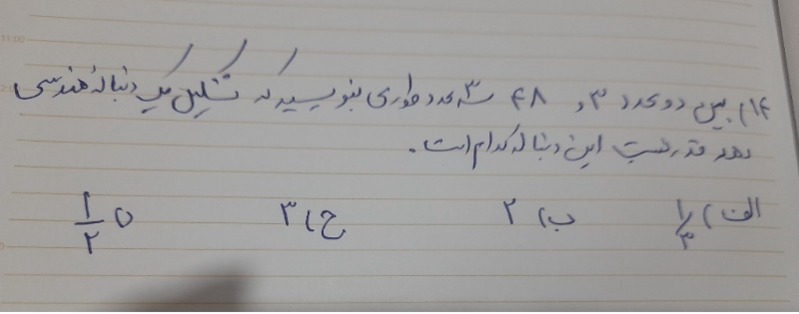 ۱۴) بین دو عدد ۳ و ۴۸ سه عدد طوری بنویسید که تشکیل یک دنبالهٔ هندسی
دهد قدر نسبت این دنباله کدام است.
الف) ۱/۳ ب) ۲ ج) ۳ د) ۱/۲